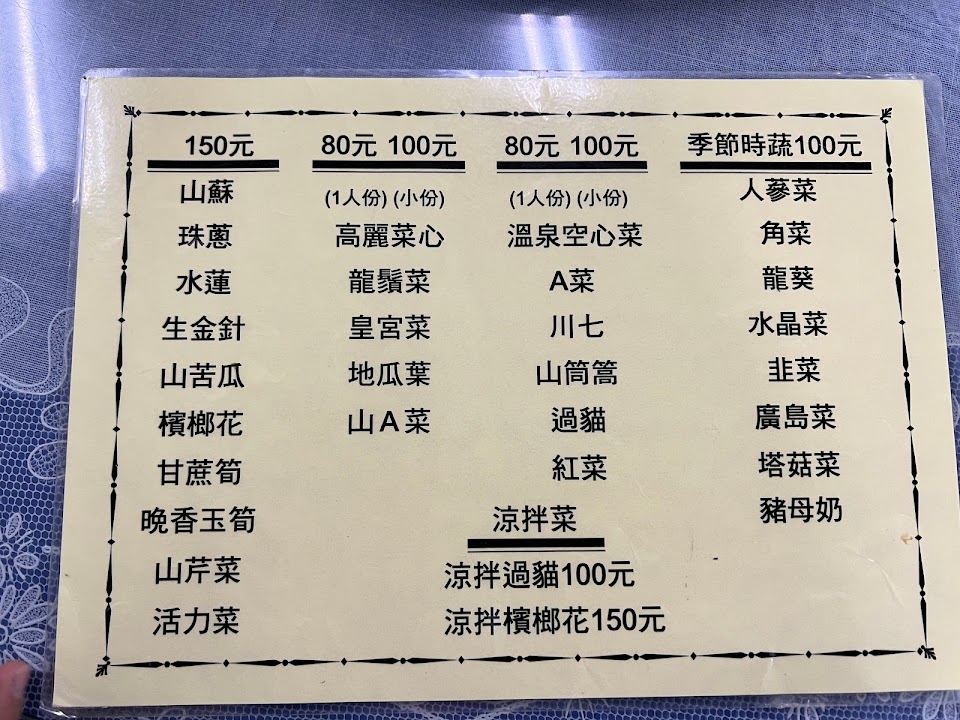 150元
山蘇
珠蔥
水蓮
生金針
山苦瓜
檳榔花
甘蔗筍
晚香玉筍
山芹菜
活力菜
80元 100元
(1人份) (小份)
高麗菜心
龍鬚菜
皇宮菜
地瓜葉
山A菜
80元 100元
(1人份) (小份)
溫泉空心菜
A菜
川七
山筒篙
過貓
紅菜
季節時蔬100元
人蔘菜
角菜
龍葵
水晶菜
韭菜
廣島菜
塔菇菜
豬母奶
涼拌菜
涼拌過貓100元
涼拌檳榔花150元